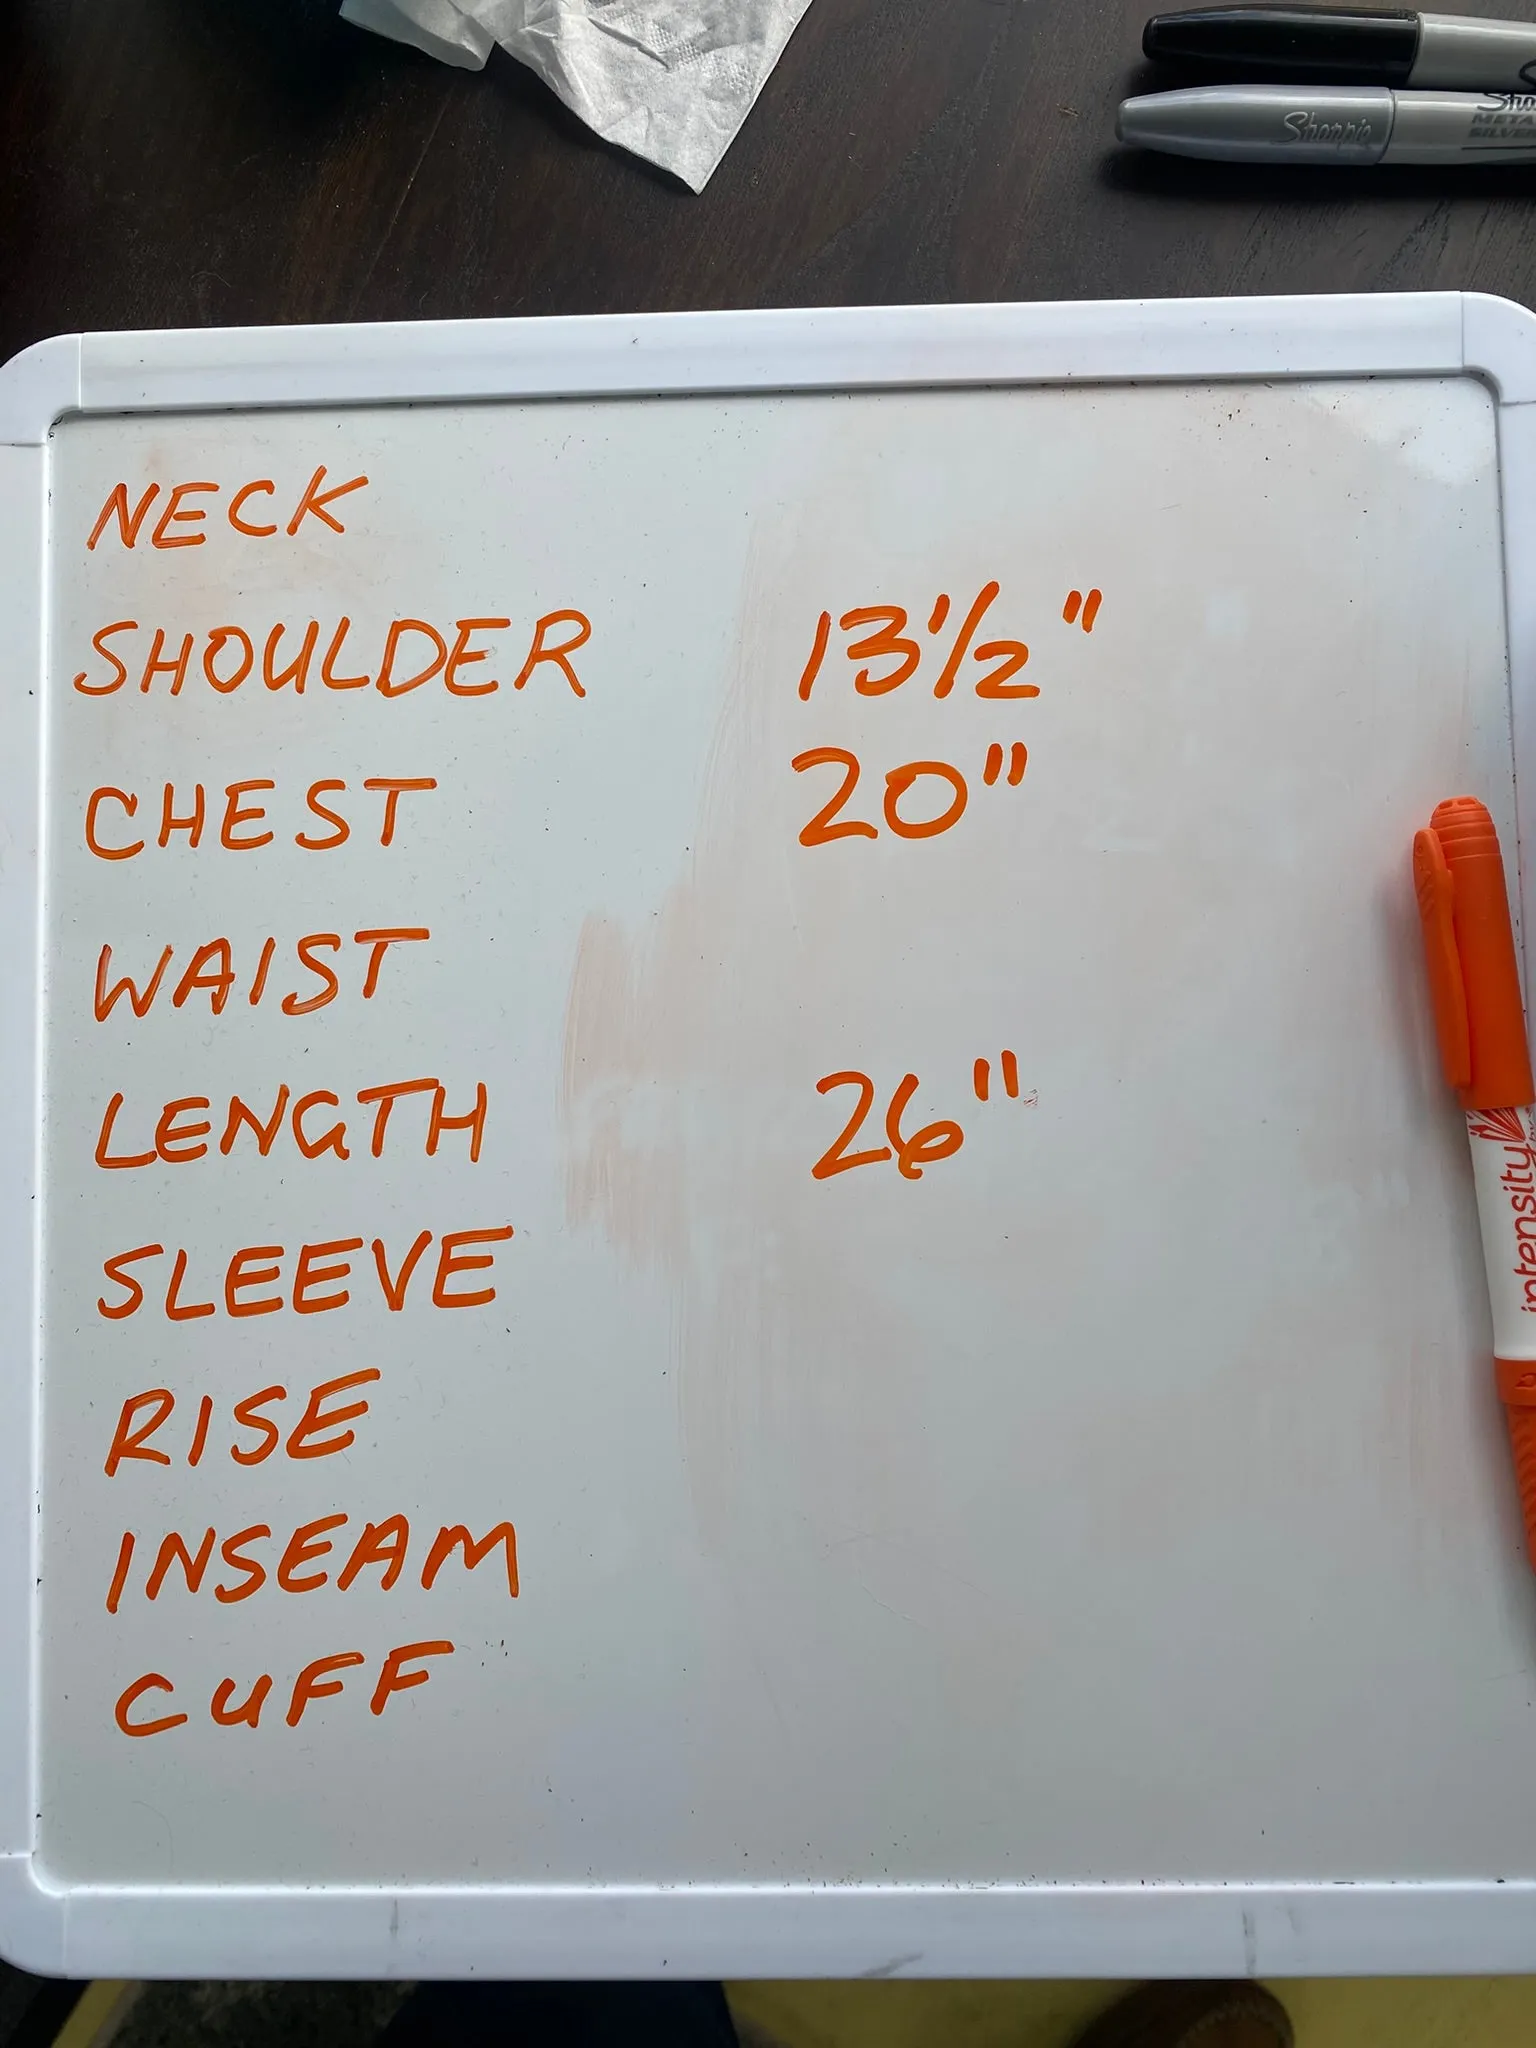 Sharpie
METAL
SILVER
NECK
SHOULDER 13 1/2 "
CHEST 20"
WAIST
LENGTH 26"
SLEEVE
RISE
INSEAM
CUFF
intensity